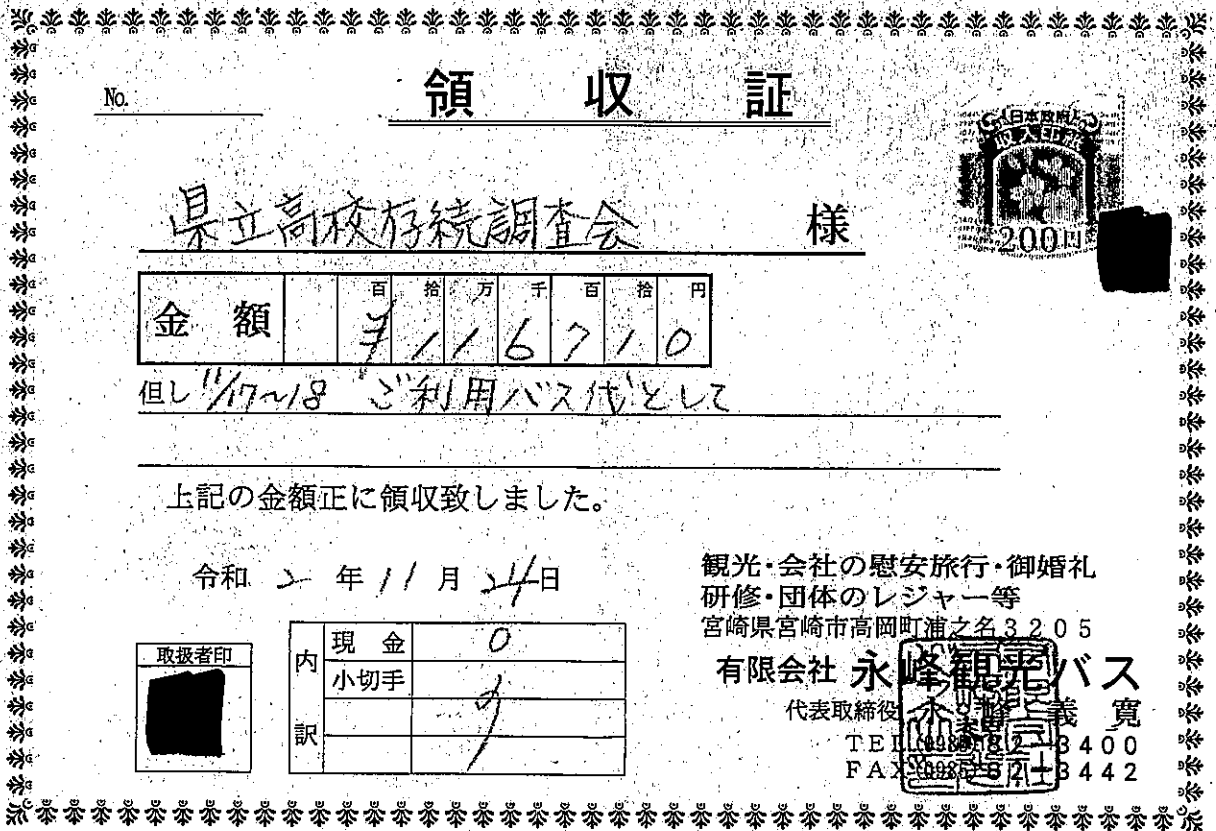 No.
領収証
日本政府
収入印紙
200円
県立高校存続調査会 様
百 拾 万 千 百 拾 円
金額 ¥116710
但し 11/17~18 ご利用バス代として
上記の金額正に領収致しました。
令和 2 年 11 月 24 日
観光・会社の慰安旅行・御婚礼
研修・団体のレジャー等
宮崎県宮崎市高岡町浦之名3205
有限会社 永峰観光バス
代表取締役 永峰義寛
TEL(0985)82-3400
FAX(0985)82-3442
取扱者印
内訳
現金 0
小切手